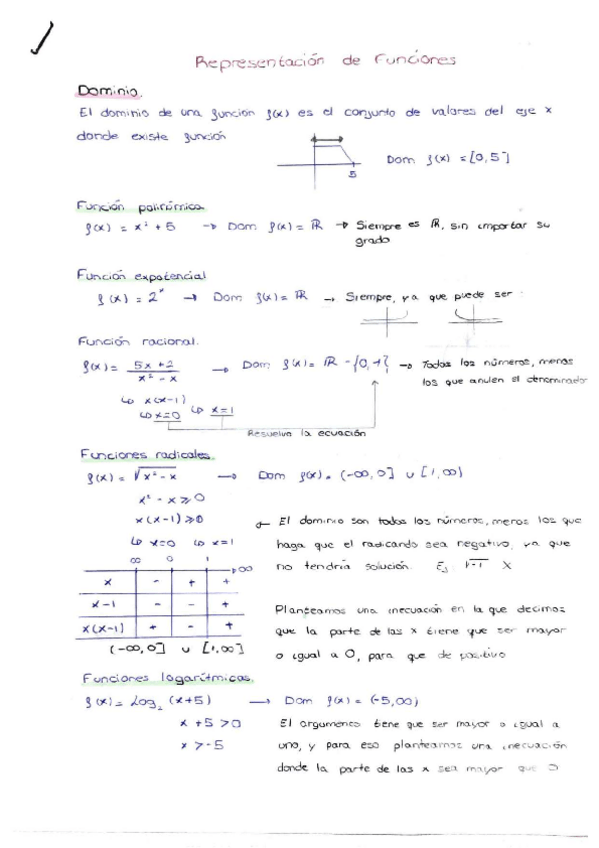 Representación de Funciones
Dominio.
El dominio de una función f(x) es el conjunto de valores del eje x
donde existe función
5
Dom f(x) = [0,5]
Función polinómica
f(x) = x² + 5 → Dom f(x) = ℝ → Siempre es ℝ, sin importar su
grado
Función expotencial
f(x) = 2ˣ → Dom f(x) = ℝ → Siempre, ya que puede ser :
Función racional.
f(x) = (5x + 2)/(x² - x) → Dom f(x) = ℝ - {0,1} → Todos los números, menos
los que anulen el denominador
↳ x(x-1)
↳ x=0 ↳ x=1
Resuelvo la ecuación
Funciones radicales.
f(x) = √(x² - x) → Dom f(x) = (-∞, 0] ∪ [1, ∞)
x² - x ≥ 0
x(x-1) ≥ 0
↳ x=0 ↳ x=1
El dominio son todos los números, menos los que
haga que el radicando sea negativo, ya que
no tendría solución. Ej √-1 X
∞ 0 1 +∞
x - + +
x-1 - - +
x(x-1) + - +
(-∞,0] ∪ [1,∞]
Planteamos una inecuación en la que decimos
que la parte de las x tiene que ser mayor
o igual a 0, para que de positivo
Funciones logarítmicas.
f(x) = Log₂ (x+5) → Dom f(x) = (-5,∞)
x + 5 > 0
x > -5
El argumento tiene que ser mayor o igual a
uno, y para eso planteamos una inecuación
donde la parte de las x sea mayor que 0